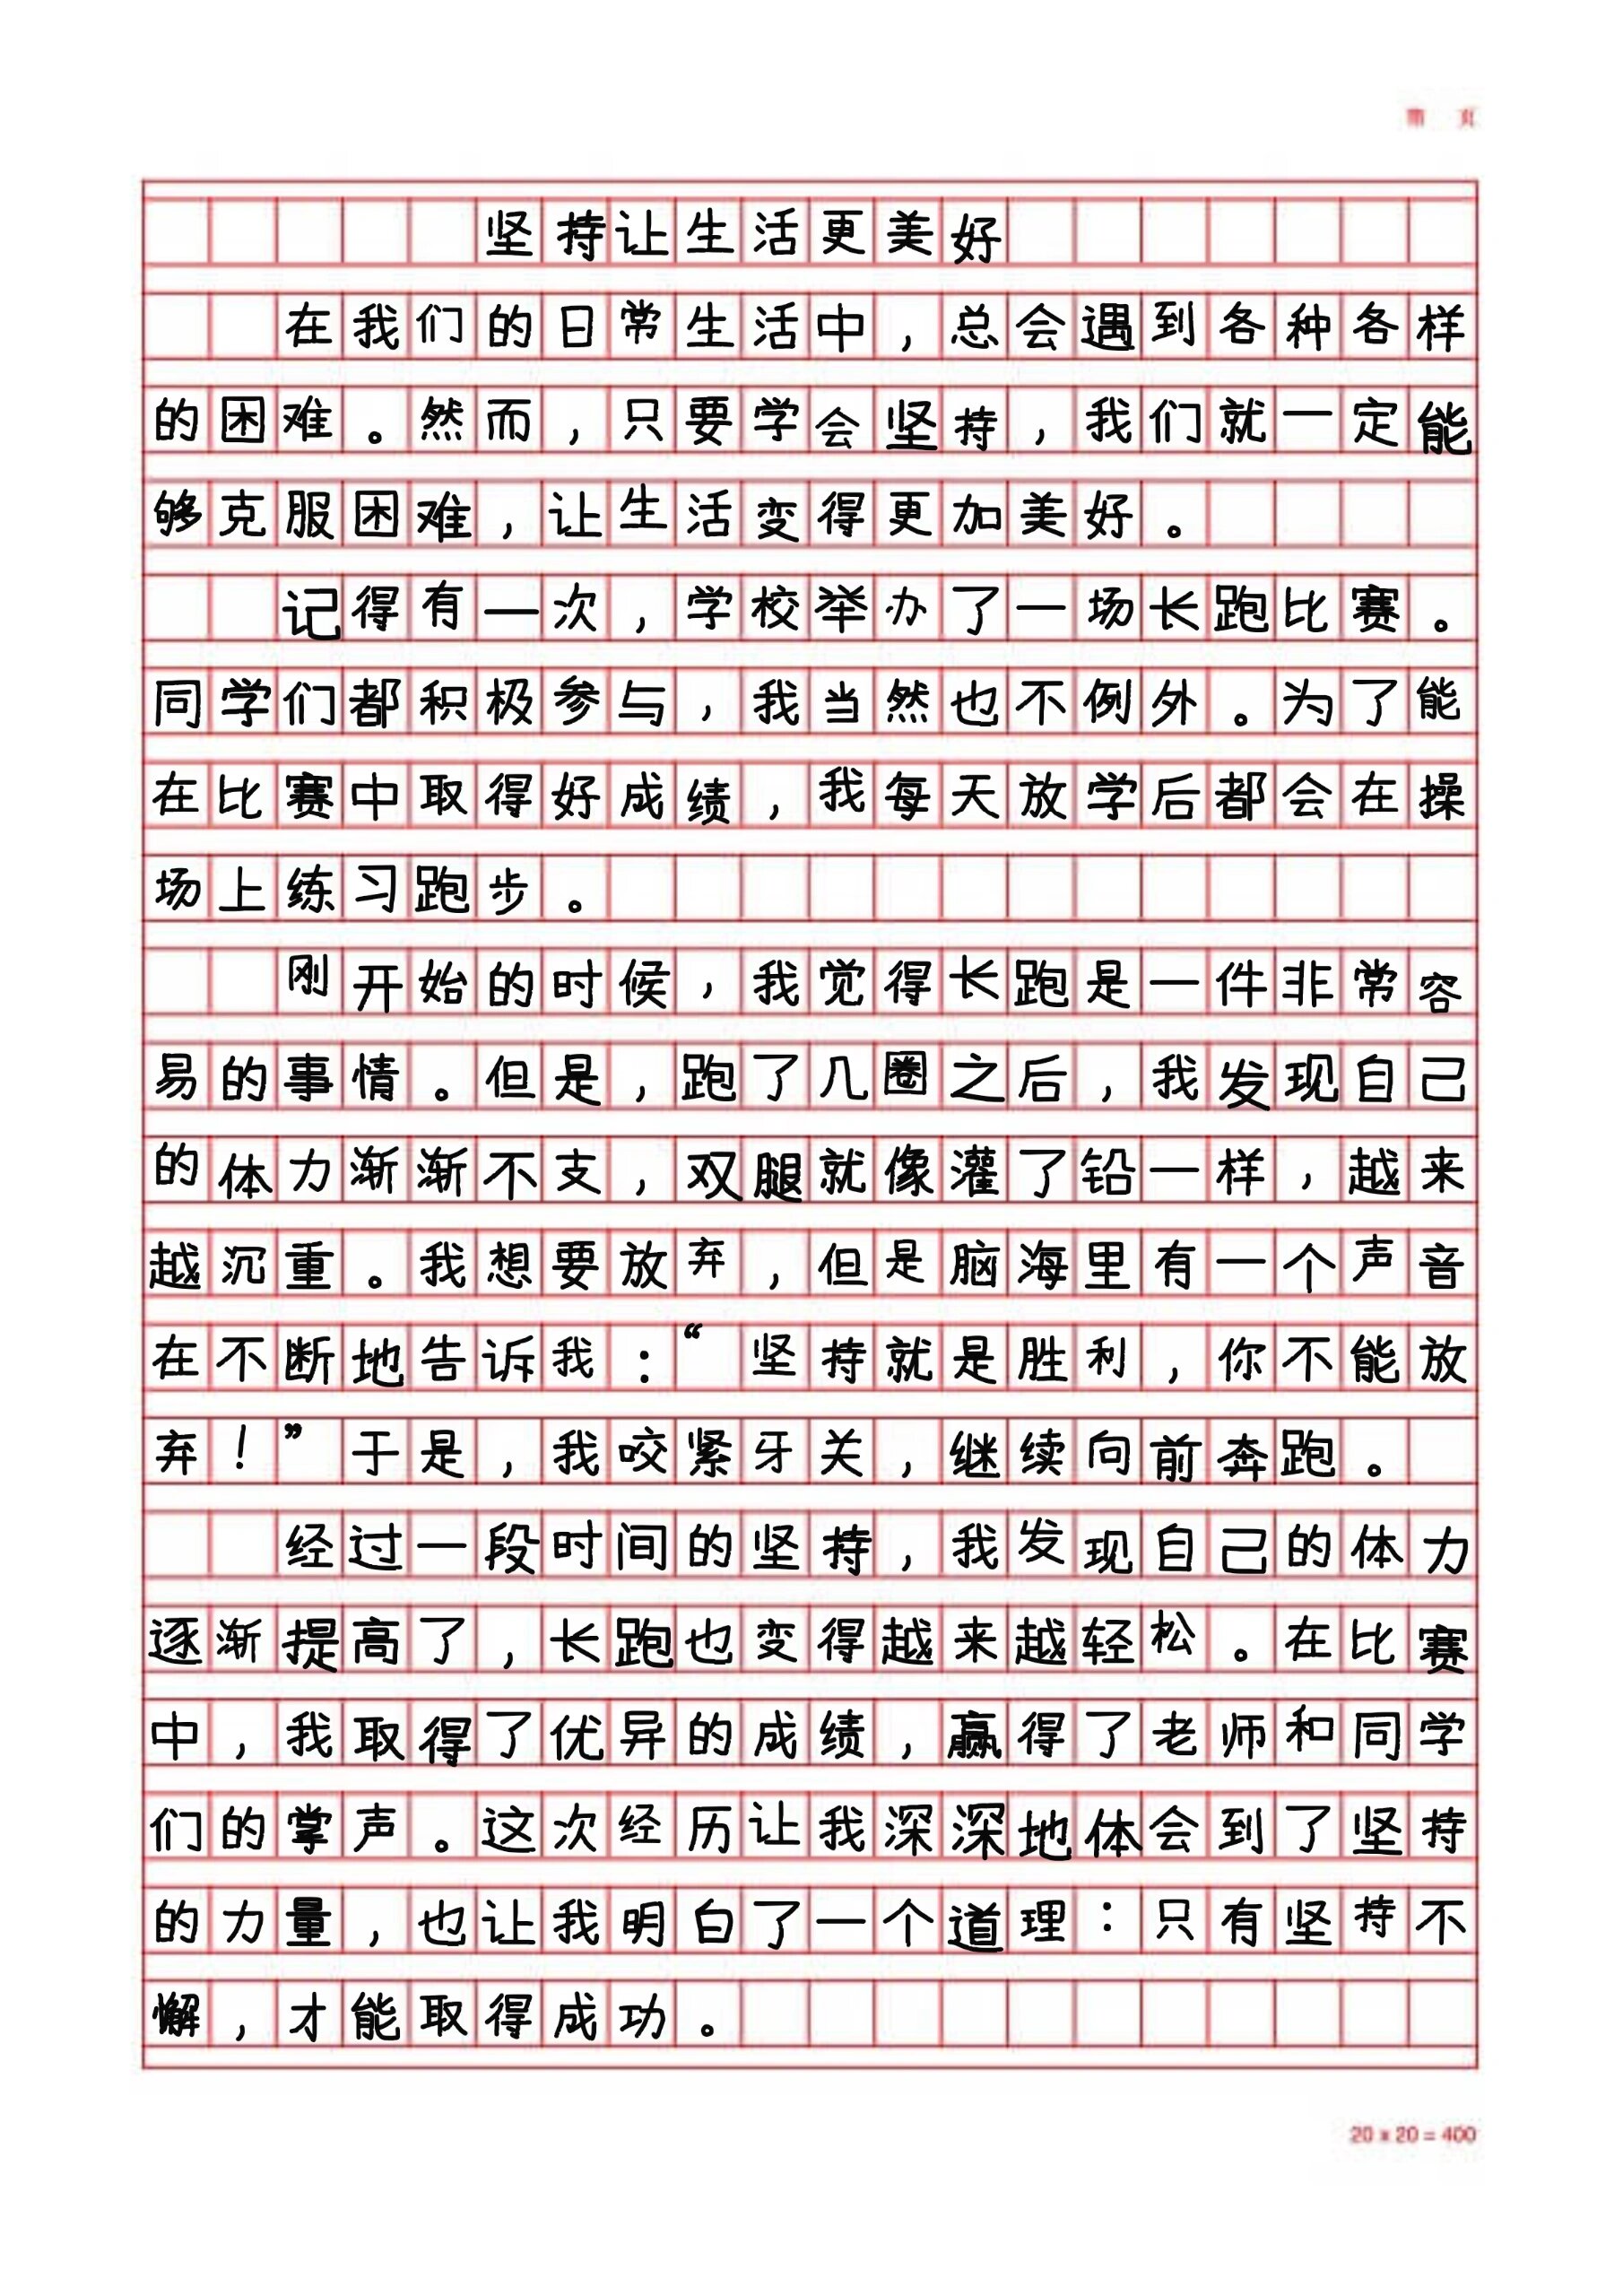 第 页
坚持让生活更美好
在我们的日常生活中，总会遇到各种各样
的困难。然而，只要学会坚持，我们就一定能
够克服困难，让生活变得更加美好。
记得有一次，学校举办了一场长跑比赛。
同学们都积极参与，我当然也不例外。为了能
在比赛中取得好成绩，我每天放学后都会在操
场上练习跑步。
刚开始的时候，我觉得长跑是一件非常容
易的事情。但是，跑了几圈之后，我发现自己
的体力渐渐不支，双腿就像灌了铅一样，越来
越沉重。我想要放弃，但是脑海里有一个声音
在不断地告诉我：“坚持就是胜利，你不能放
弃！”于是，我咬紧牙关，继续向前奔跑。
经过一段时间的坚持，我发现自己的体力
逐渐提高了，长跑也变得越来越轻松。在比赛
中，我取得了优异的成绩，赢得了老师和同学
们的掌声。这次经历让我深深地体会到了坚持
的力量，也让我明白了一个道理：只有坚持不
懈，才能取得成功。
20 x 20 = 400